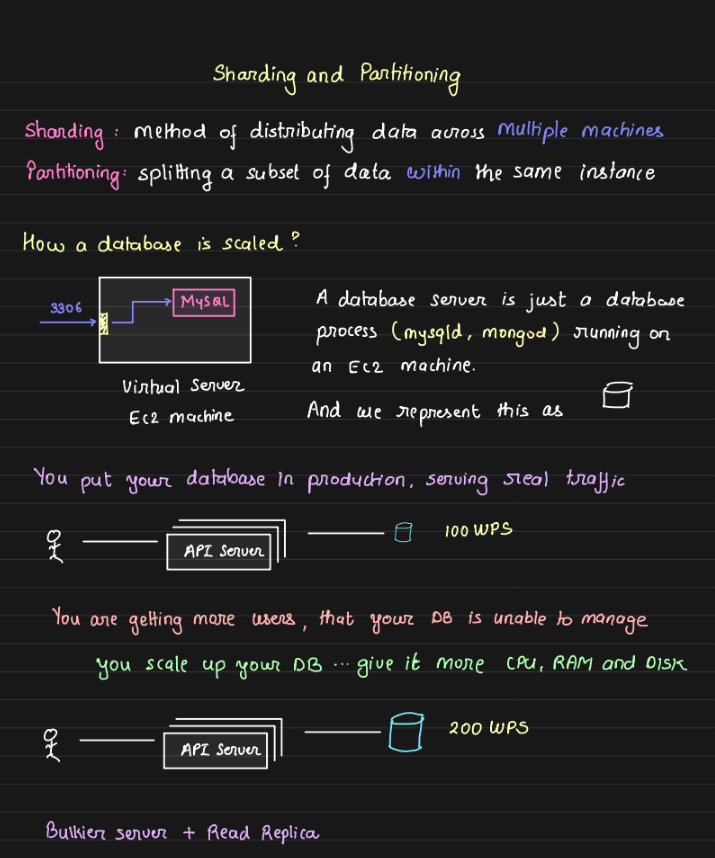 Sharding and Partitioning
Sharding : method of distributing data across multiple machines
Partitioning: splitting a subset of data within the same instance
How a database is scaled?
3306
MySQL
A database server is just a database
process (mysqld, mongod) running on
an EC2 machine.
Virtual Server
EC2 machine
And we represent this as
You put your database in production, serving real traffic
API Server
100 WPS
You are getting more users, that your DB is unable to manage
you scale up your DB ... give it more CPU, RAM and DISK
API Server
200 WPS
Bulkier server + Read Replica